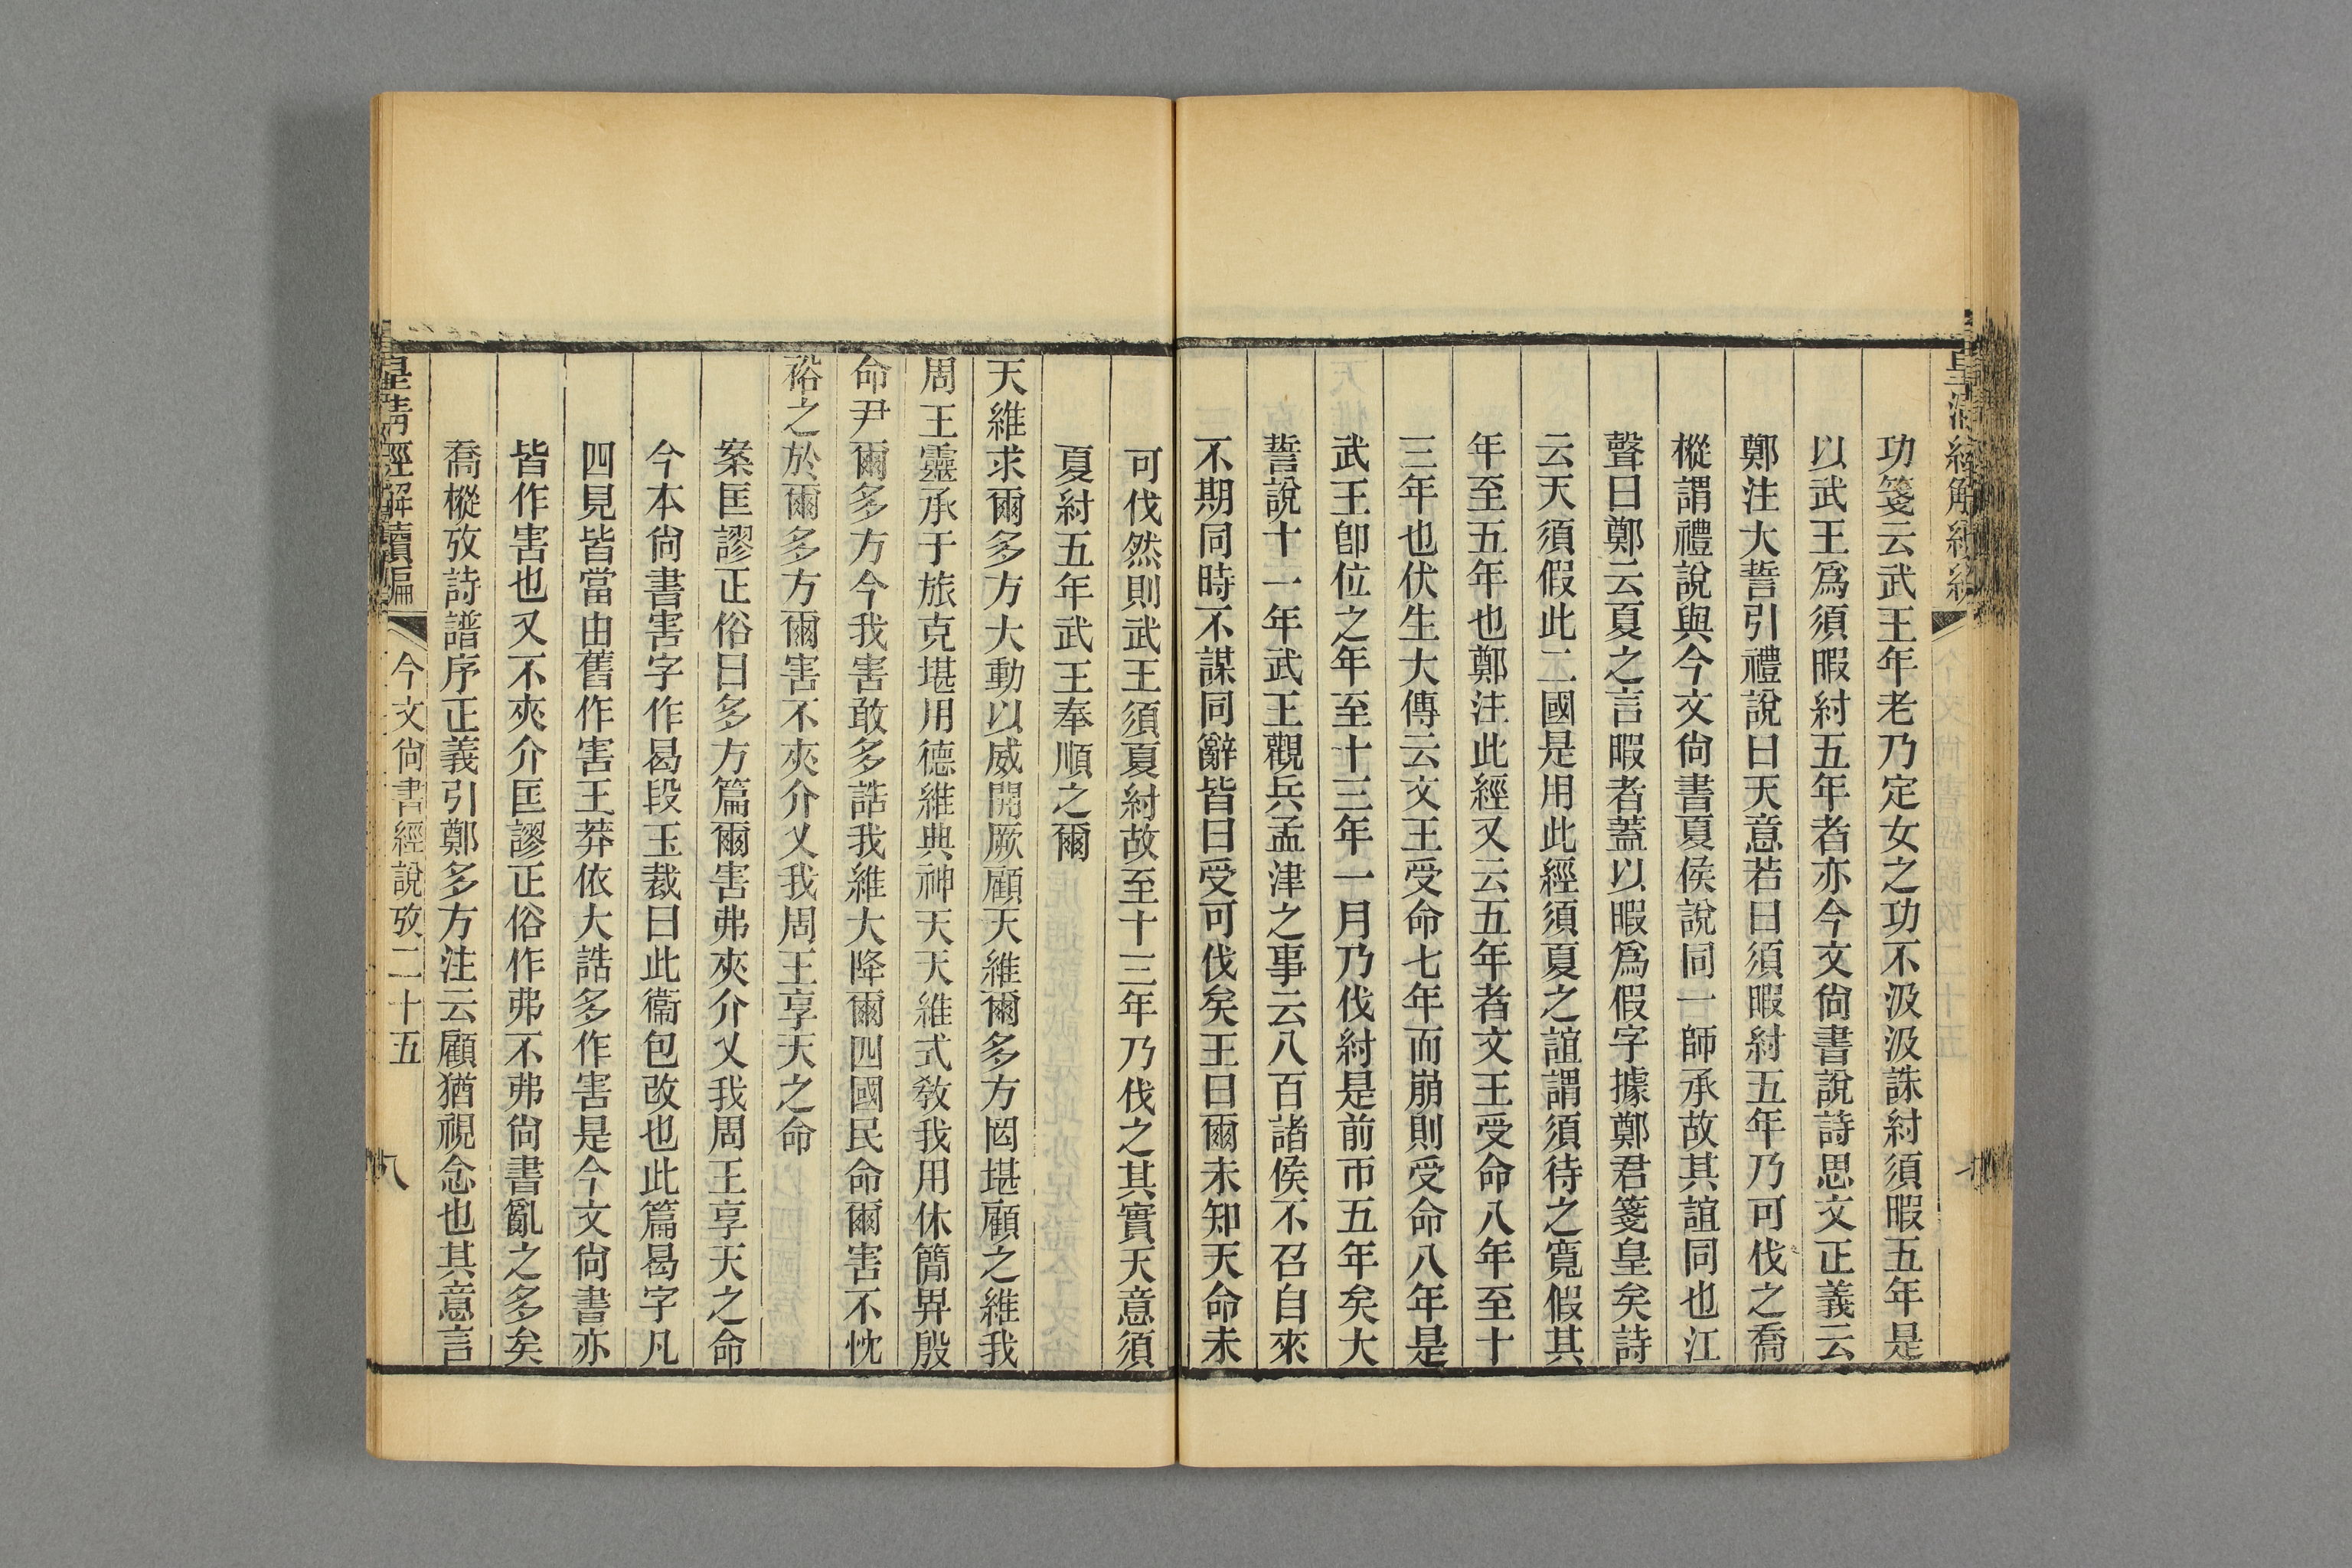 皇清經解續經
功箋云武王年老乃定女之功不汲汲誅紂須暇五年是
以武王爲須暇紂五年者亦今文尙書說詩思文正義云
鄭注大誓引禮說曰天意若曰須暇紂五年乃可伐之喬
樅謂禮說與今文尙書夏侯說同一師承故其誼同也江
聲曰鄭云夏之言暇者蓋以暇爲假字據鄭君箋皇矣詩
云天須假此二國是用此經須夏之誼謂須待之寬假其
年至五年也鄭注此經又云五年者文王受命八年至十
三年也伏生大傳云文王受命七年而崩則受命八年是
武王卽位之年至十三年一月乃伐紂是前帀五年矣大
誓說十一年武王觀兵孟津之事云八百諸侯不召自來
不期同時不謀同辭皆曰受可伐矣王曰爾未知天命未
可伐然則武王須夏紂故至十三年乃伐之其實天意須
夏紂五年武王奉順之爾
天維求爾多方大動以威開厥顧天維爾多方罔堪顧之維我
周王靈承于旅克堪用德維典神天天維式敎我用休簡畀殷
命尹爾多方今我害敢多誥我維大降爾四國民命爾害不忱
裕之於爾多方爾害不夾介乂我周王享天之命
案匡謬正俗曰多方篇爾害弗夾介乂我周王享天之命
今本尙書害字作曷段玉裁曰此衞包改也此篇曷字凡
四見皆當由舊作害王莽依大誥多作害是今文尙書亦
皆作害也又不夾介匡謬正俗作弗不弗尙書亂之多矣
喬樅攷詩譜序正義引鄭多方注云顧猶視念也其意言
皇淸經解續編
今文尙書經說攷二十五
八